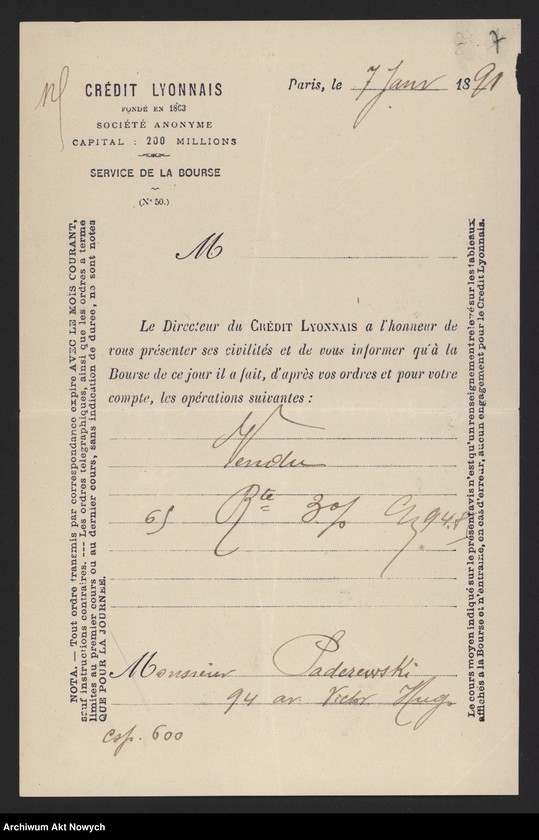 7
CRÉDIT LYONNAIS
FONDÉ EN 1863
SOCIÉTÉ ANONYME
CAPITAL : 200 MILLIONS
SERVICE DE LA BOURSE
(N° 50.)
Paris, le 7 Janv 1891
M
Le Directeur du CRÉDIT LYONNAIS a l'honneur de
vous présenter ses civilités et de vous informer qu'à la
Bourse de ce jour il a fait, d'après vos ordres et pour votre
compte, les opérations suivantes :
Vendu
65 Rte 3% 94.85
Monsieur Paderewski
94 av. Victor Hugo
csp. 600
NOTA. — Tout ordre transmis par correspondance expire AVEC LE MOIS COURANT,
sauf instructions contraires. — Les ordres télégraphiques, ainsi que les ordres à terme
limités au premier cours ou au dernier cours, sans indication de durée, ne sont notés
QUE POUR LA JOURNÉE.
Le cours moyen indiqué sur le présent avis n'est qu'un renseignement relevé sur les tableaux
affichés à la Bourse et n'entraîne, en cas d'erreur, aucun engagement pour le Crédit Lyonnais.
Archiwum Akt Nowych